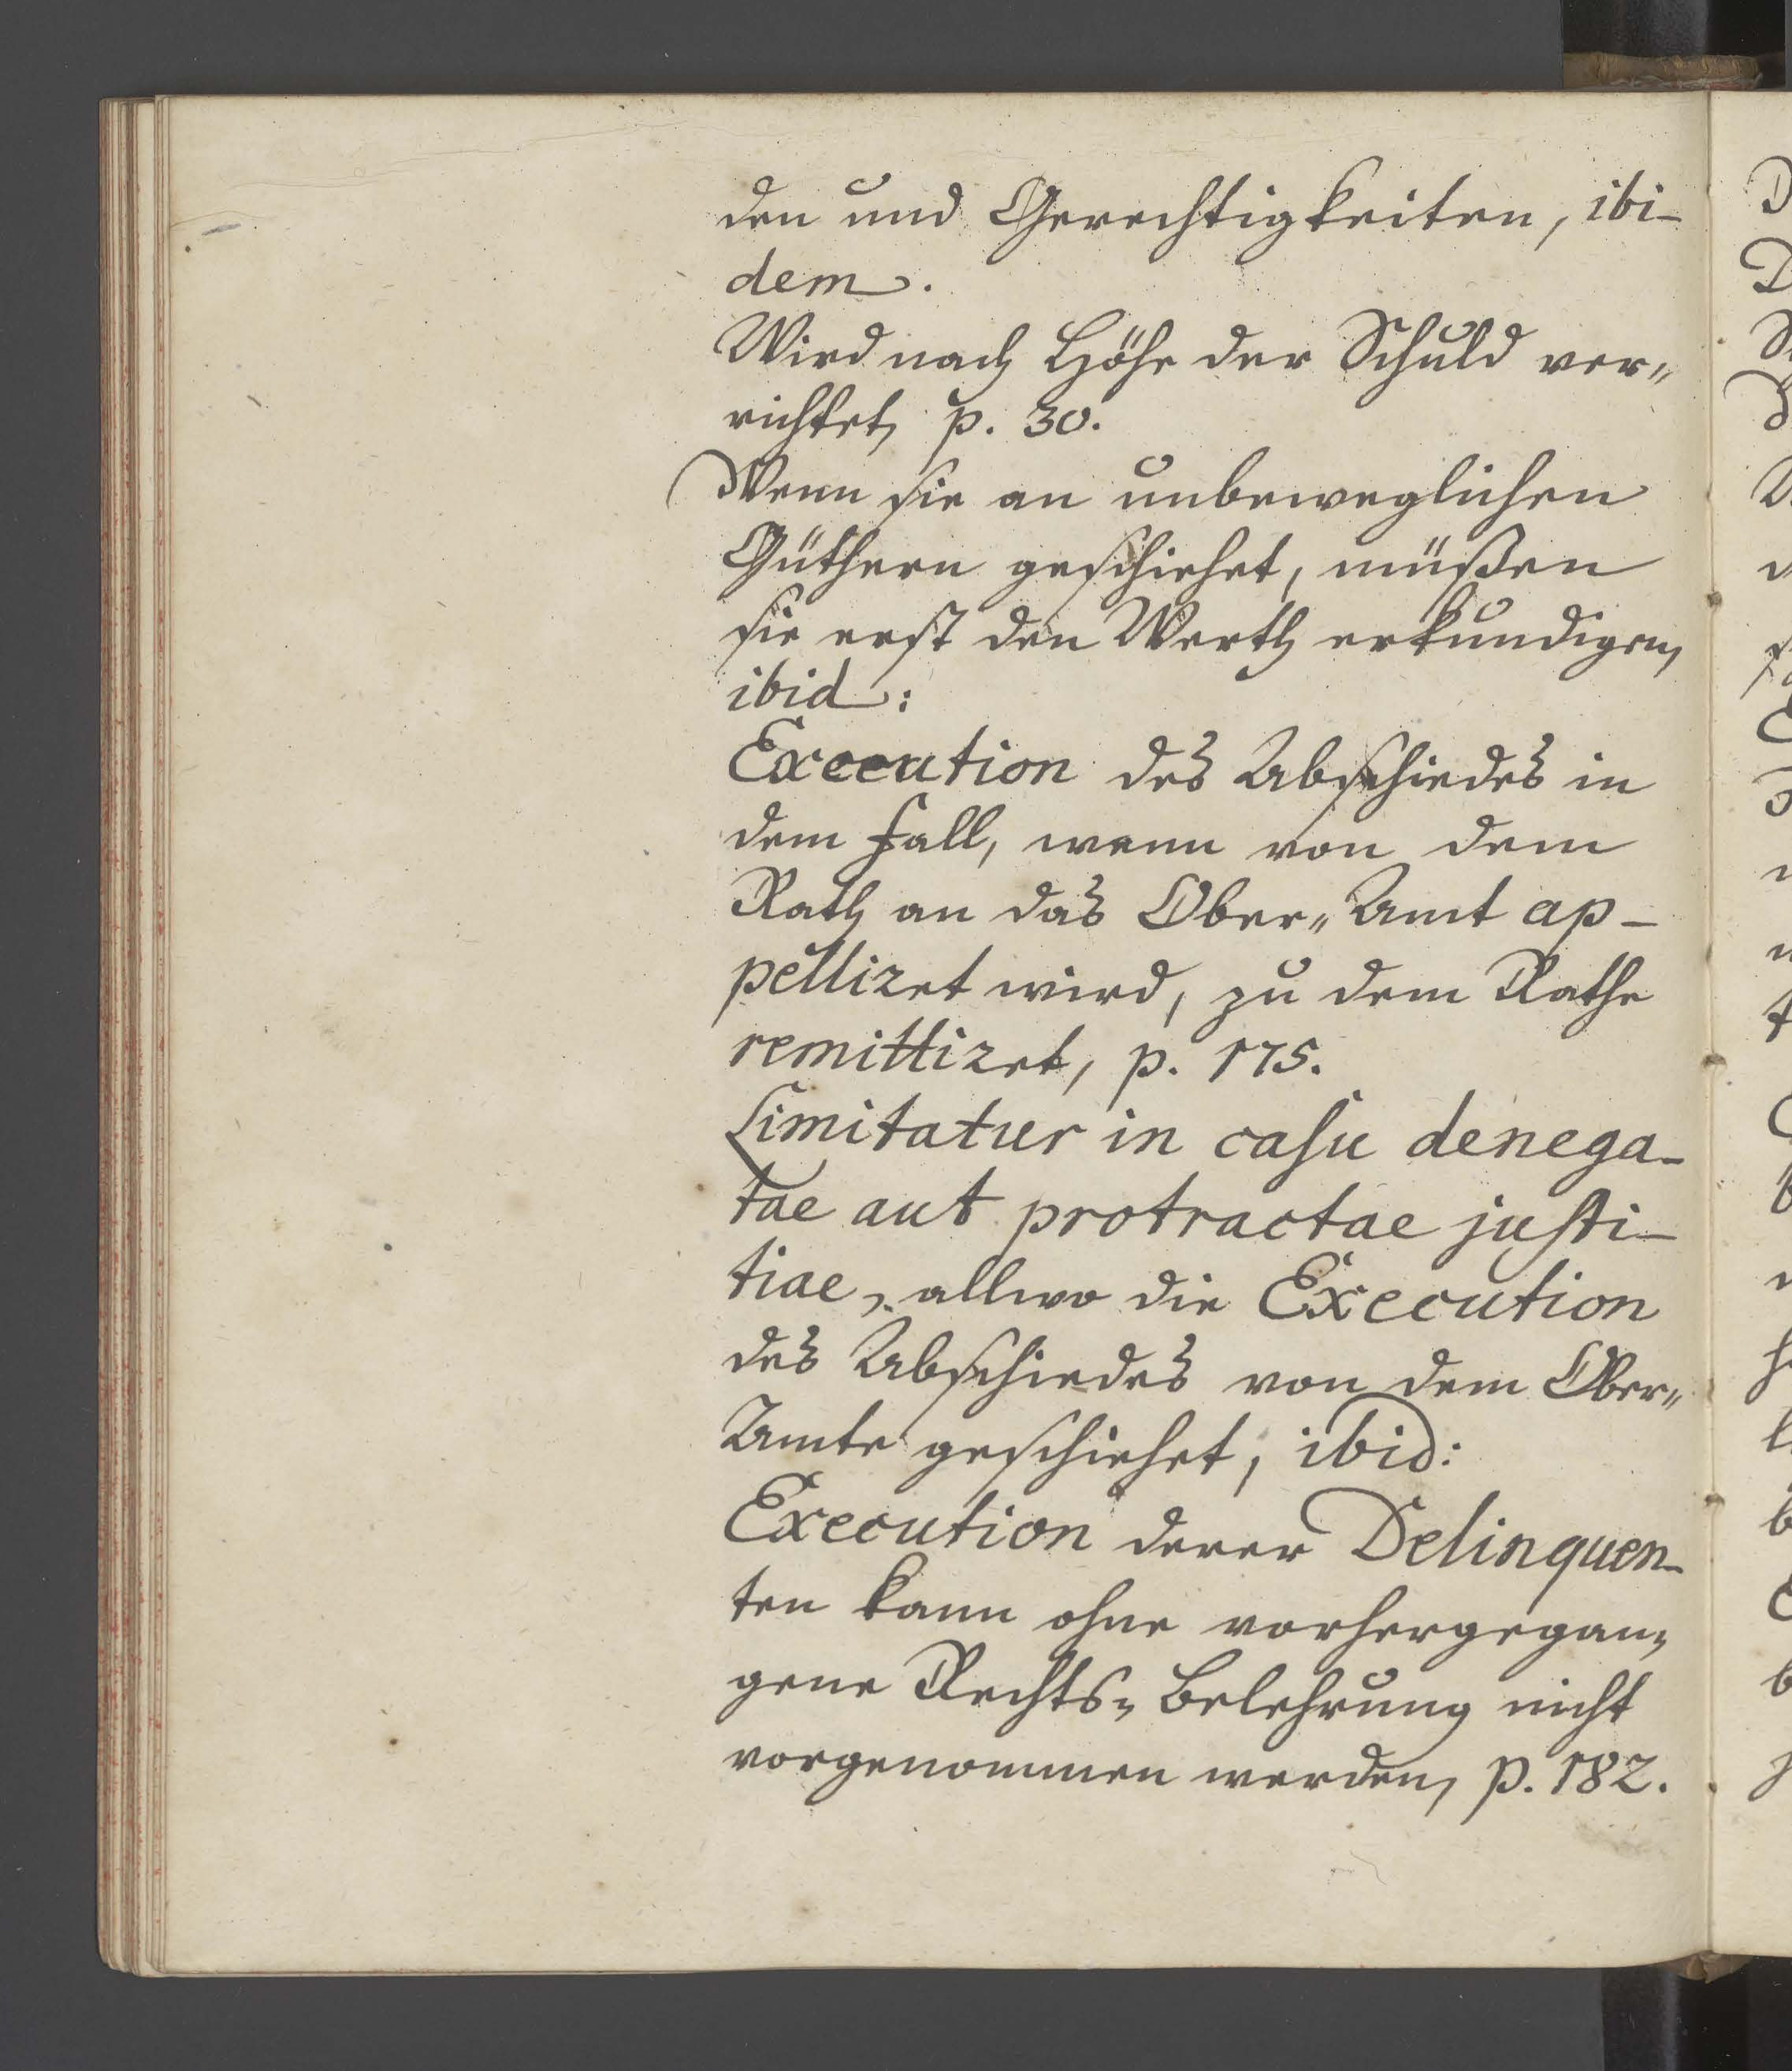 den und Gerechtigkeiten, ibi-
dem.
Wird nach Höhe der Schuld ver„
richtet, p. 30.
Wenn sie an unbeweglichen
Güthern geschiehet, müßen
sie erst den Werth erkundigen,
ibid:
Execution des Abschiedes in
dem Fall, wenn von dem
Rath an das Ober„Amt ap-
pelliret wird, zu dem Rathe
remittiret, p. 175.
Limitatur in casu denega-
tae aut protractae justi-
tiae, allwo die Execution
des Abschiedes von dem Ober„
Amte geschiehet, ibid:
Execution derer Delinquen-
ten kann ohne vorhergegan„
gene Rechts„Belehrung nicht
vorgenommen werden, p. 182.